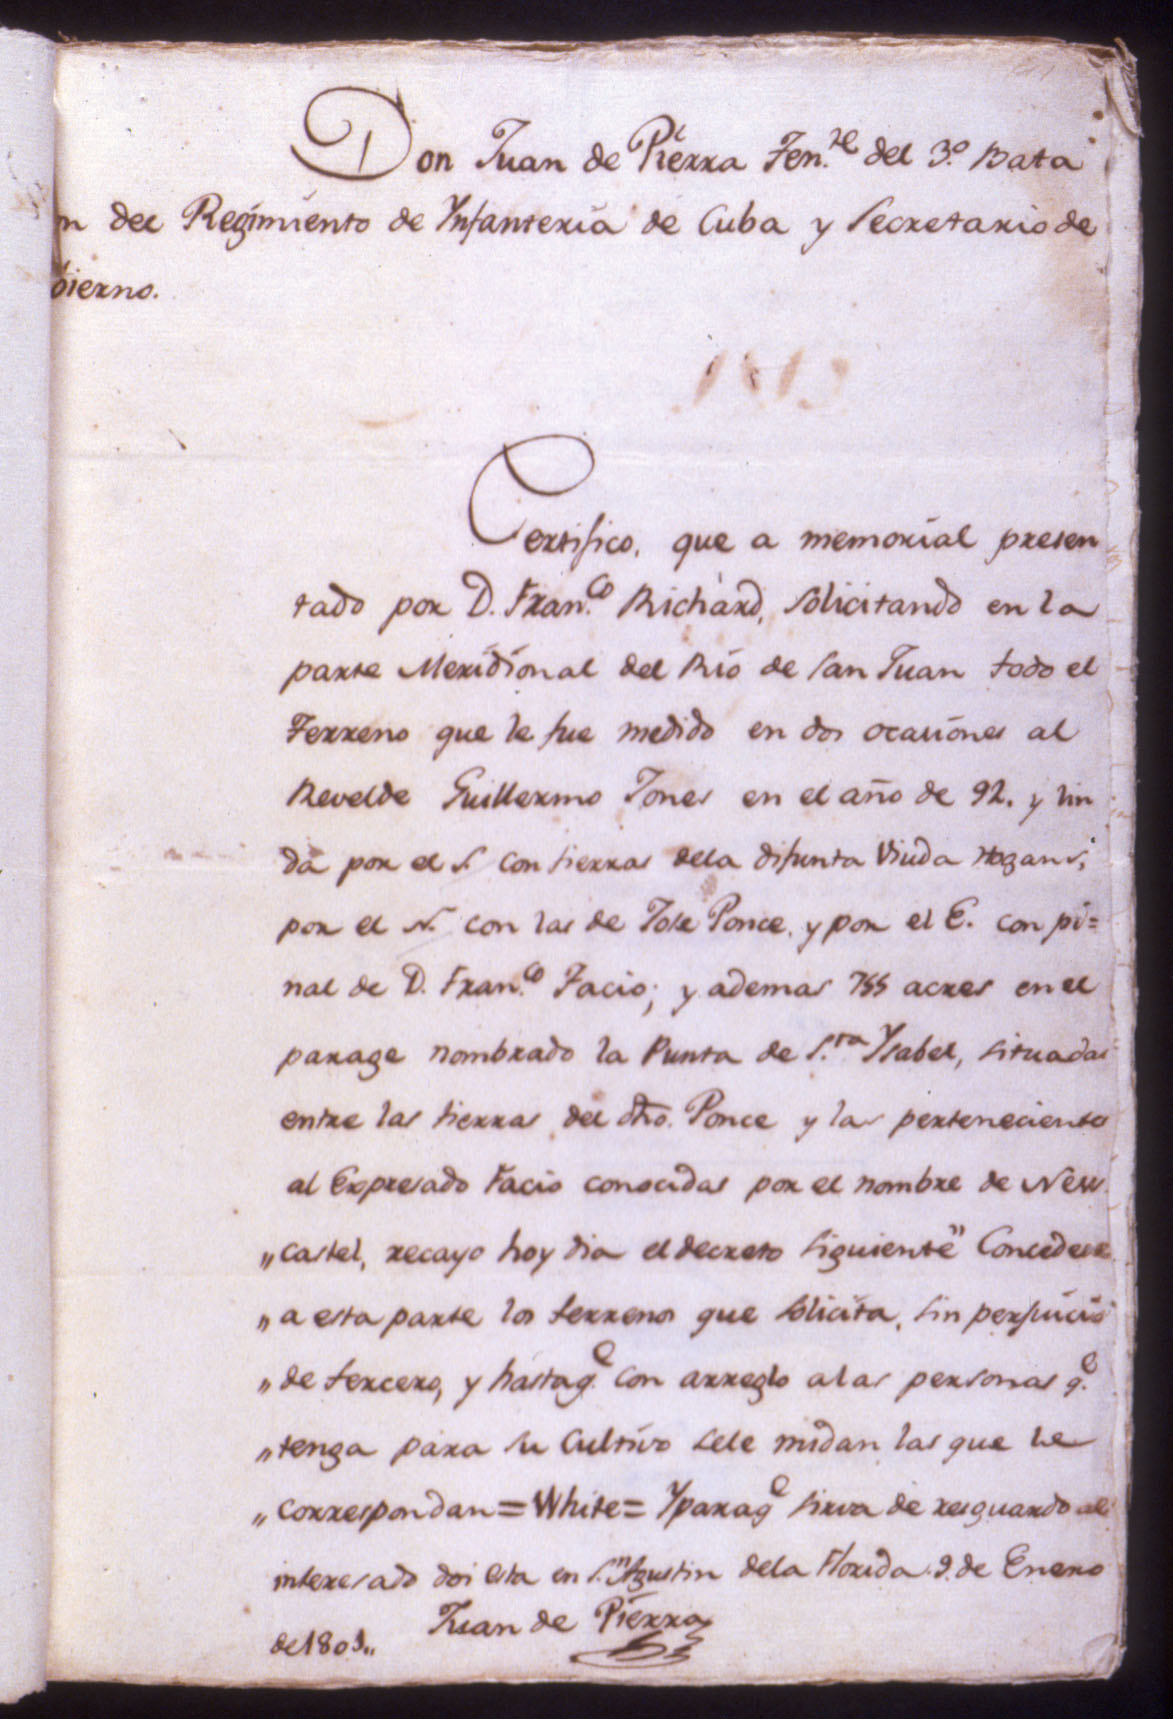 Don Juan de Pierra Ten.te del 3.o Bata
n del Regimiento de Ynfanteria de Cuba y Secretario de
bierno.
Certifico, que a memorial presen
tado por D. Fran.co Richard, solicitando en la
parte Meridional del Rio de San Juan todo el
Terreno que le fue medido en dos ocasiones al
Revelde Guillermo Jones en el año de 92. y lin
da por el S. con tierras dela difunta Viuda Hogans,
por el N. con las de Jose Ponce, y por el E. con pi=
nal de D. Fran.co Facio; y ademas 755 acres en el
parage nombrado la Punta de S.ta Ysabel, situadas
entre las tierras del dho. Ponce y las pertenecientes
al Expresado Facio conocidas por el nombre de New
„ castel, recayo hoy dia el decreto siguiente" Concedese
„ a esta parte los terrenos que solicita, sin perjuicio
„ de tercero, y hasta q.e con arreglo alas personas q.e
„ tenga para su Cultivo sele midan las que le
„ correspondan = White = Ypara q.e sirva de resguardo al
interesado doi esta en S.n Agustin dela Florida 9. de Enero
de 1801..
Juan de Pierra